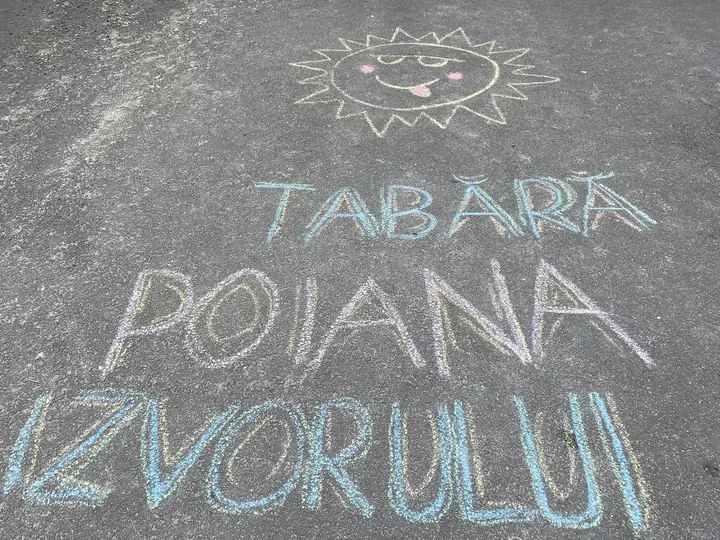 TABĂRĂ
POIANA
IZVORULUI